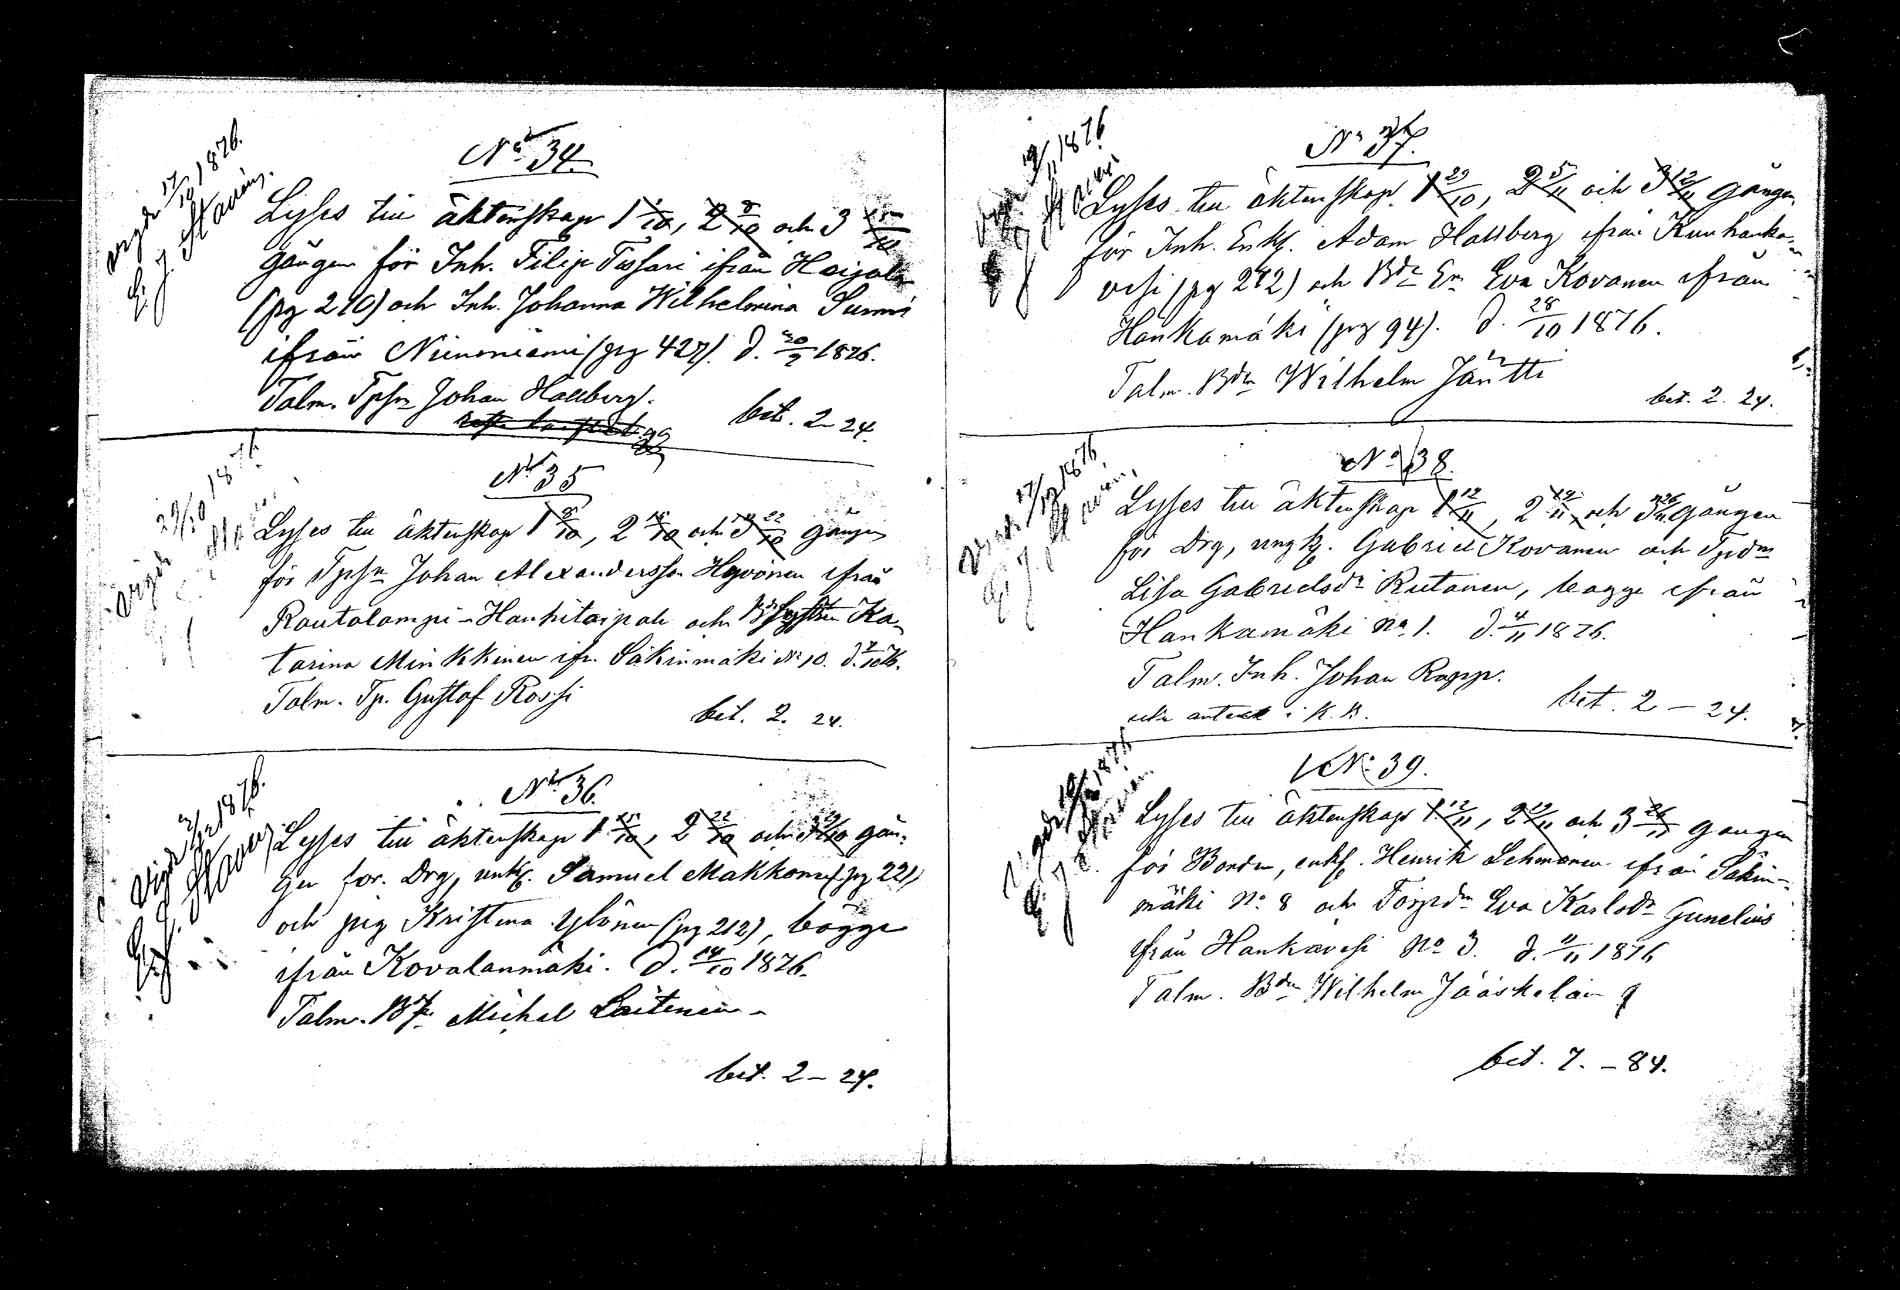 No 34.
Vigde 17/12 1876.
Lyses till äktenskap 1 1/10, 2 8/10 och 3 15/10
gången för Inh. Filip Tissari ifrån
(pg 210) och Inh. Johanna Wilhelmina
ifrån Niinoniemi (pg 427). d. 30/9 1876.
Talm. Tpsn Johan Hallberg.
bet. 2-24.
No 35
Vigde 29/10 1876
Lyses till äktenskap 1 8/10, 2 15/10 och 3 22/10 gången
för Tpsn Johan Alexandersson Hyvönen ifrån
Rautalampi-Hankitaipale och Ka-
tarina Minkkinen ifr. Säkinmäki No 10. d. 7/10 76.
Talm. Tp. Gustaf Rossi
bet. 2. 24.
No 36.
Vigde 3/12 1876.
Lyses till äktenskap 1 15/10, 2 22/10 och 3 29/10 gån-
gen för Drg, unkf. Samuel Makkonen (pg 221)
och pig Kristina Ylönen (pg 212), bägge
ifrån Kovalanmäki. d. 14/10 1876.
Talm. Michel Laitinen
bet. 2-24.
No 37.
1876
Lyses till äktenskap 1 29/10, 2 5/11 och 3 12/11 gången
för Inh. Enkf. Adam Hallberg ifrån Kunhanka-
vesi (pg 242) och Eva Kovanen ifrån
Hankamäki (pg 94). d. 28/10 1876.
Talm. Bdn Wilhelm Jäntti
bet. 2. 24.
No 38.
1876
Lyses till äktenskap 1 12/11, 2 19/11 och 3 26/11 gången
för Drg, ungkf. Gabriel Kovanen och Tpdr
Lisa Gabrielsdr Rutanen, bägge ifrån
Hankamäki No 1. d. 4/11 1876.
Talm. Inh. Johan Ropp.
icke anteck i K.B.
bet. 2-24.
No 39.
1876
Lyses till äktenskap 1 12/11, 2 19/11 och 3 26/11 gången
för Bonden, enkf. Henrik Lehmonen ifrån Säkin-
mäki No 8 och Torpdr Eva Karlsdr Gunelius
ifrån Hankavesi No 3. d. 11/11 1876
Talm. Bdn Wilhelm Jääskeläin
bet. 7.-84.